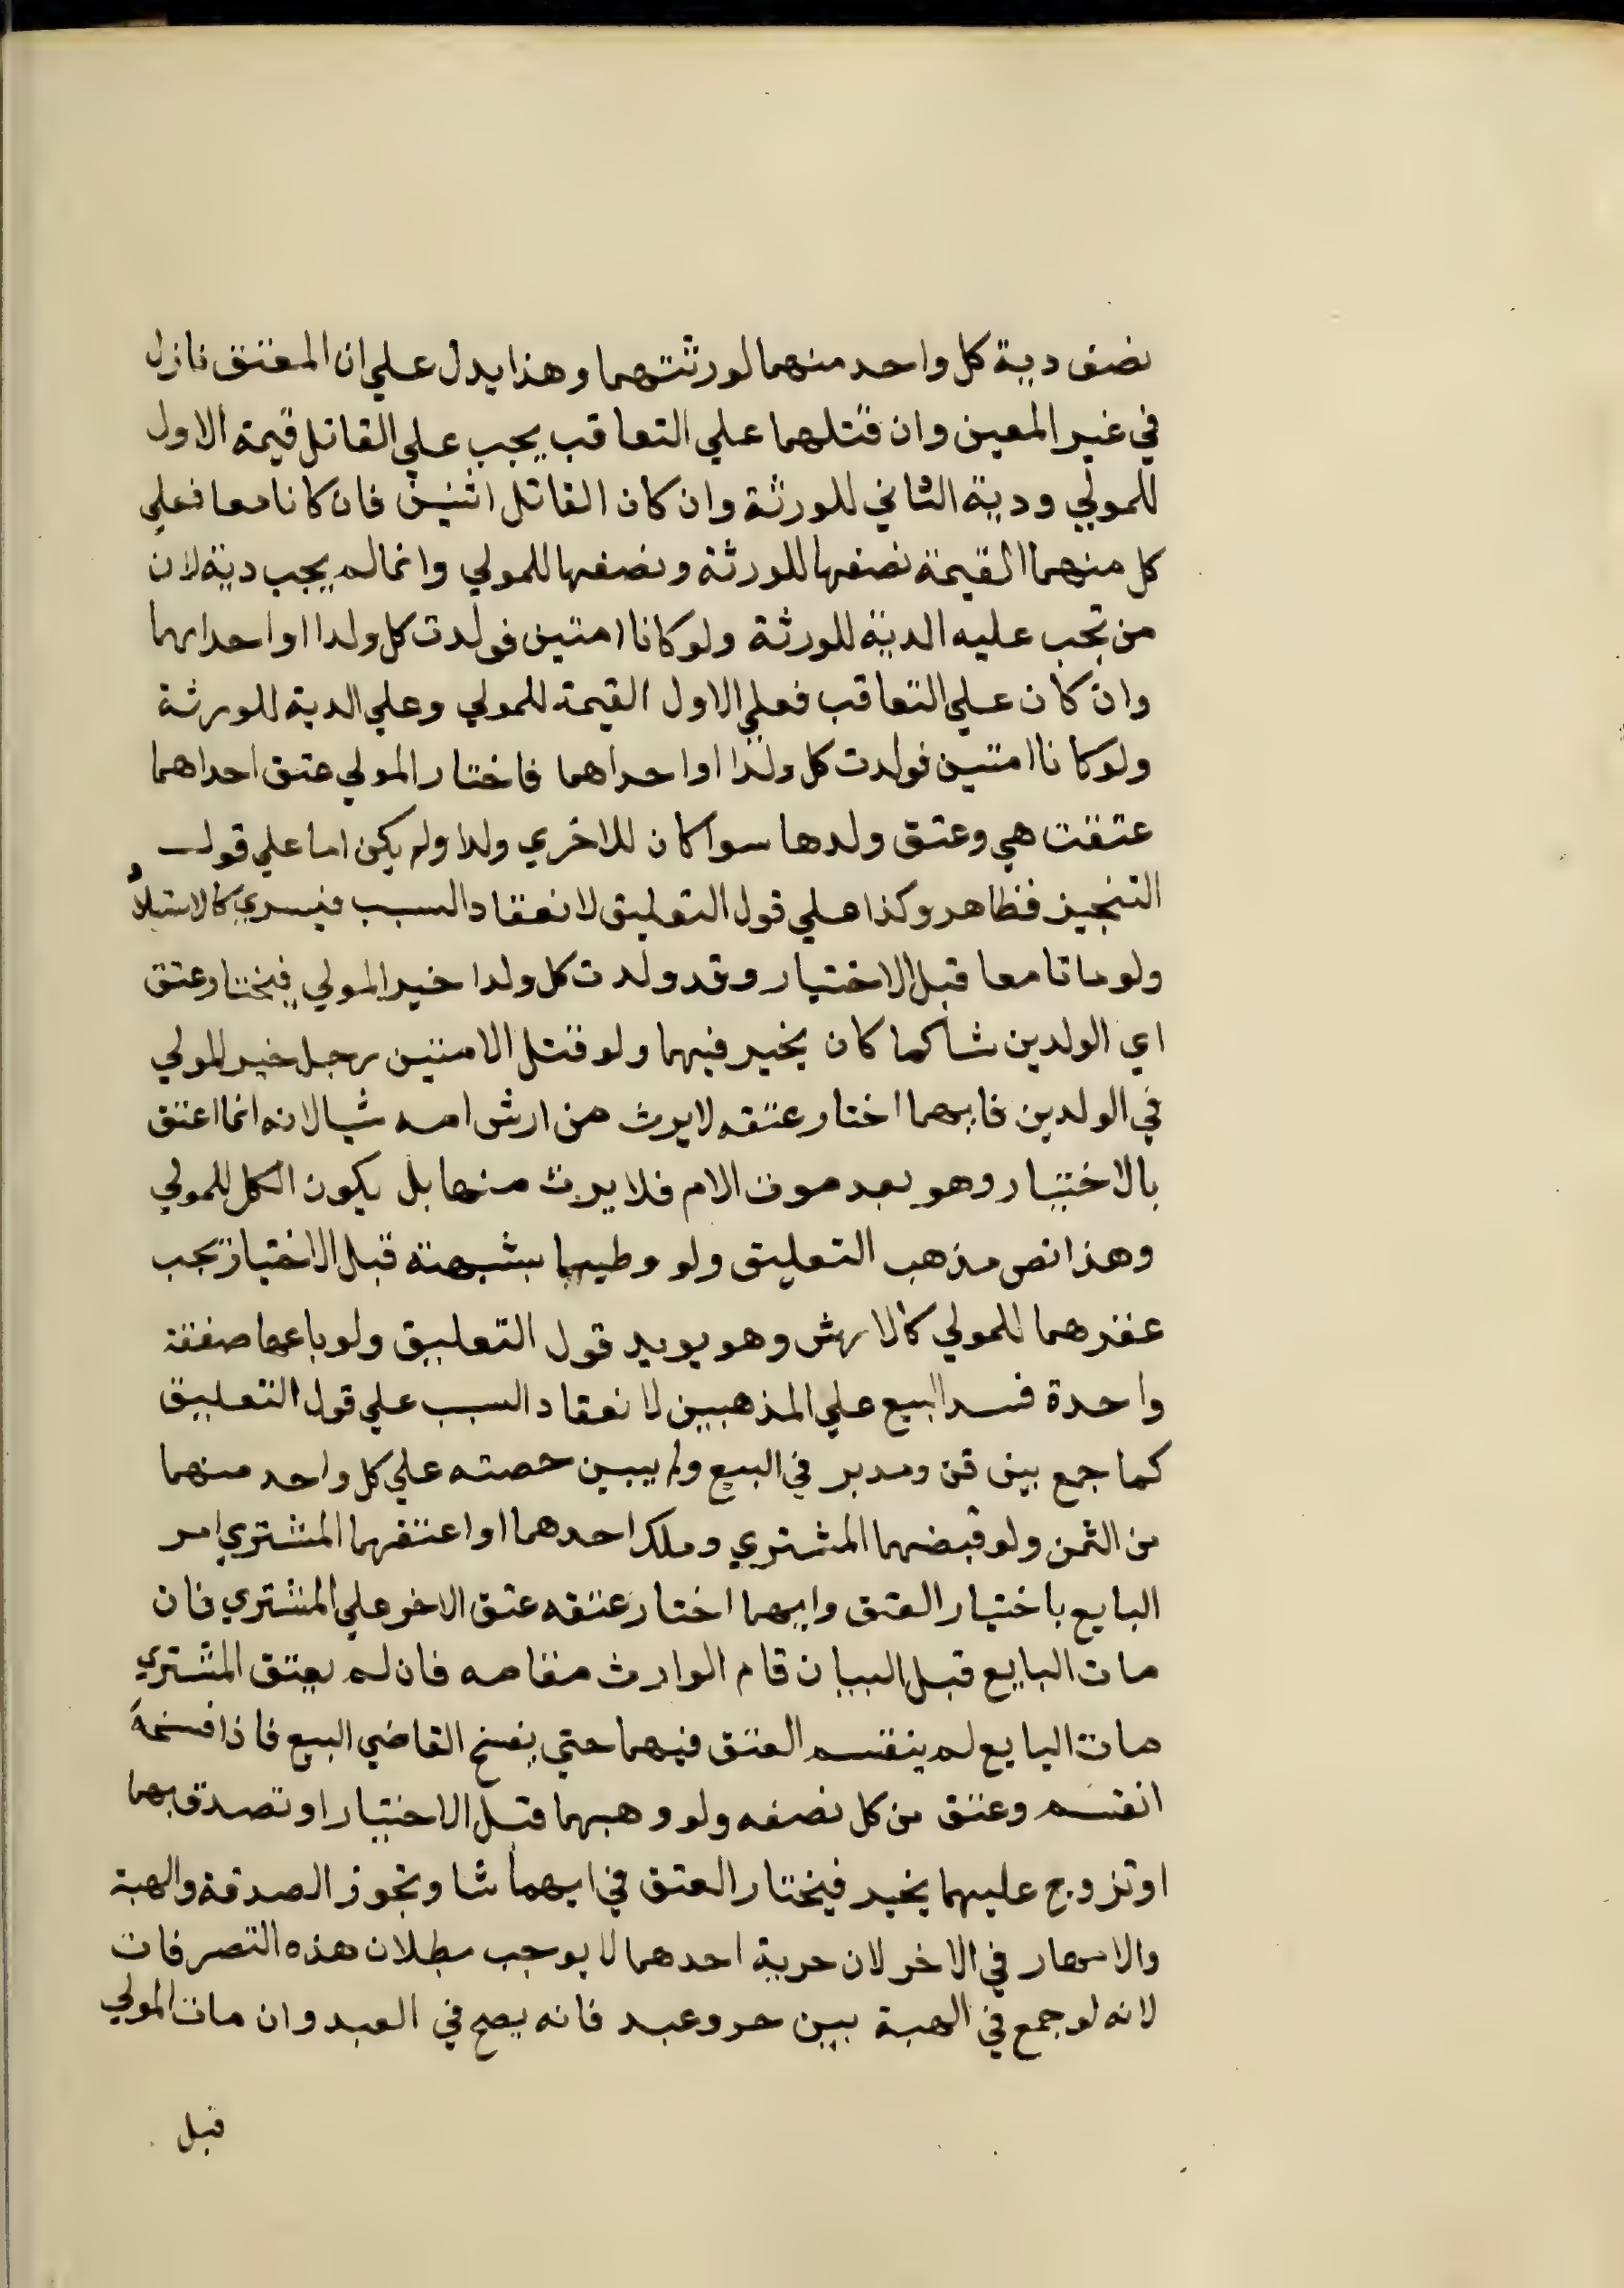 نصف دية كل واحد منهما لورثتهما وهذا يدل علي ان المعتق نازل
في غير المعين وان قتلهما علي التعاقب يجب علي القاتل قيمة الاول
للمولي ودية الثاني للورثة وان كان القاتل اثنين فان كانا معا فعلي
كل منهما القيمة نصفها للورثة ونصفها للمولي وانما لم يجب دية لان
من تجب عليه الدية للورثة ولو كانا امتين فولدت كل ولدا او احداهما
وان كان علي التعاقب فعلي الاول القيمة للمولي وعلي الدية للورثة
ولو كانا امتين فولدت كل ولدا او احداهما فاختار المولي عتق احداهما
عتقت هي وعتق ولدها سوا كان للاخري ولد او لم يكن اما علي قول
التنجيز فظاهر وكذا علي قول التعليق لانعقاد السبب فيسري كالاستيلاد
ولو ماتا معا قبل الاختيار وقد ولدت كل ولدا خير المولي فيختار عتق
اي الولدين شا كما كان يخير فيهما ولو قتل الامتين رجل خير المولي
في الولدين فايهما اختار عتقه لا يرث من ارش امه شيا لانه انما اعتق
بالاختيار وهو بعد موت الام فلا يرث منها بل يكون الكل للمولي
وهذا نص مذهب التعليق ولو وطيهما بشبهة قبل الاختيار تجب
عقرهما للمولي كالارش وهو يويد قول التعليق ولو باعهما صفقة
واحدة فسد البيع علي المذهبين لانعقاد السبب علي قول التعليق
كما جمع بين قن ومدبر في البيع ولم يبين حصته علي كل واحد منهما
من الثمن ولو قبضهما المشتري وملك احدهما او اعتقهما المشتري امر
البايع باختيار العتق وايهما اختار عتقه عتق الاخر علي المشتري فان
مات البايع قبل البيان قام الوارث مقامه فان لم يعتق المشتري
مات البايع لم ينقسم العتق فيهما حتي يفسخ القاضي البيع فاذا فسخه
انقسم وعتق من كل نصفه ولو وهبهما قبل الاختيار او تصدق بهما
او تزوج عليهما يخير فيختار العتق في ايهما شا وتجوز الصدقة والهبة
والامهار في الاخر لان حرية احدهما لا يوجب بطلان هذه التصرفات
لانه لو جمع في الهبة بين حر وعبد فانه يصح في العبد وان مات المولي
قبل